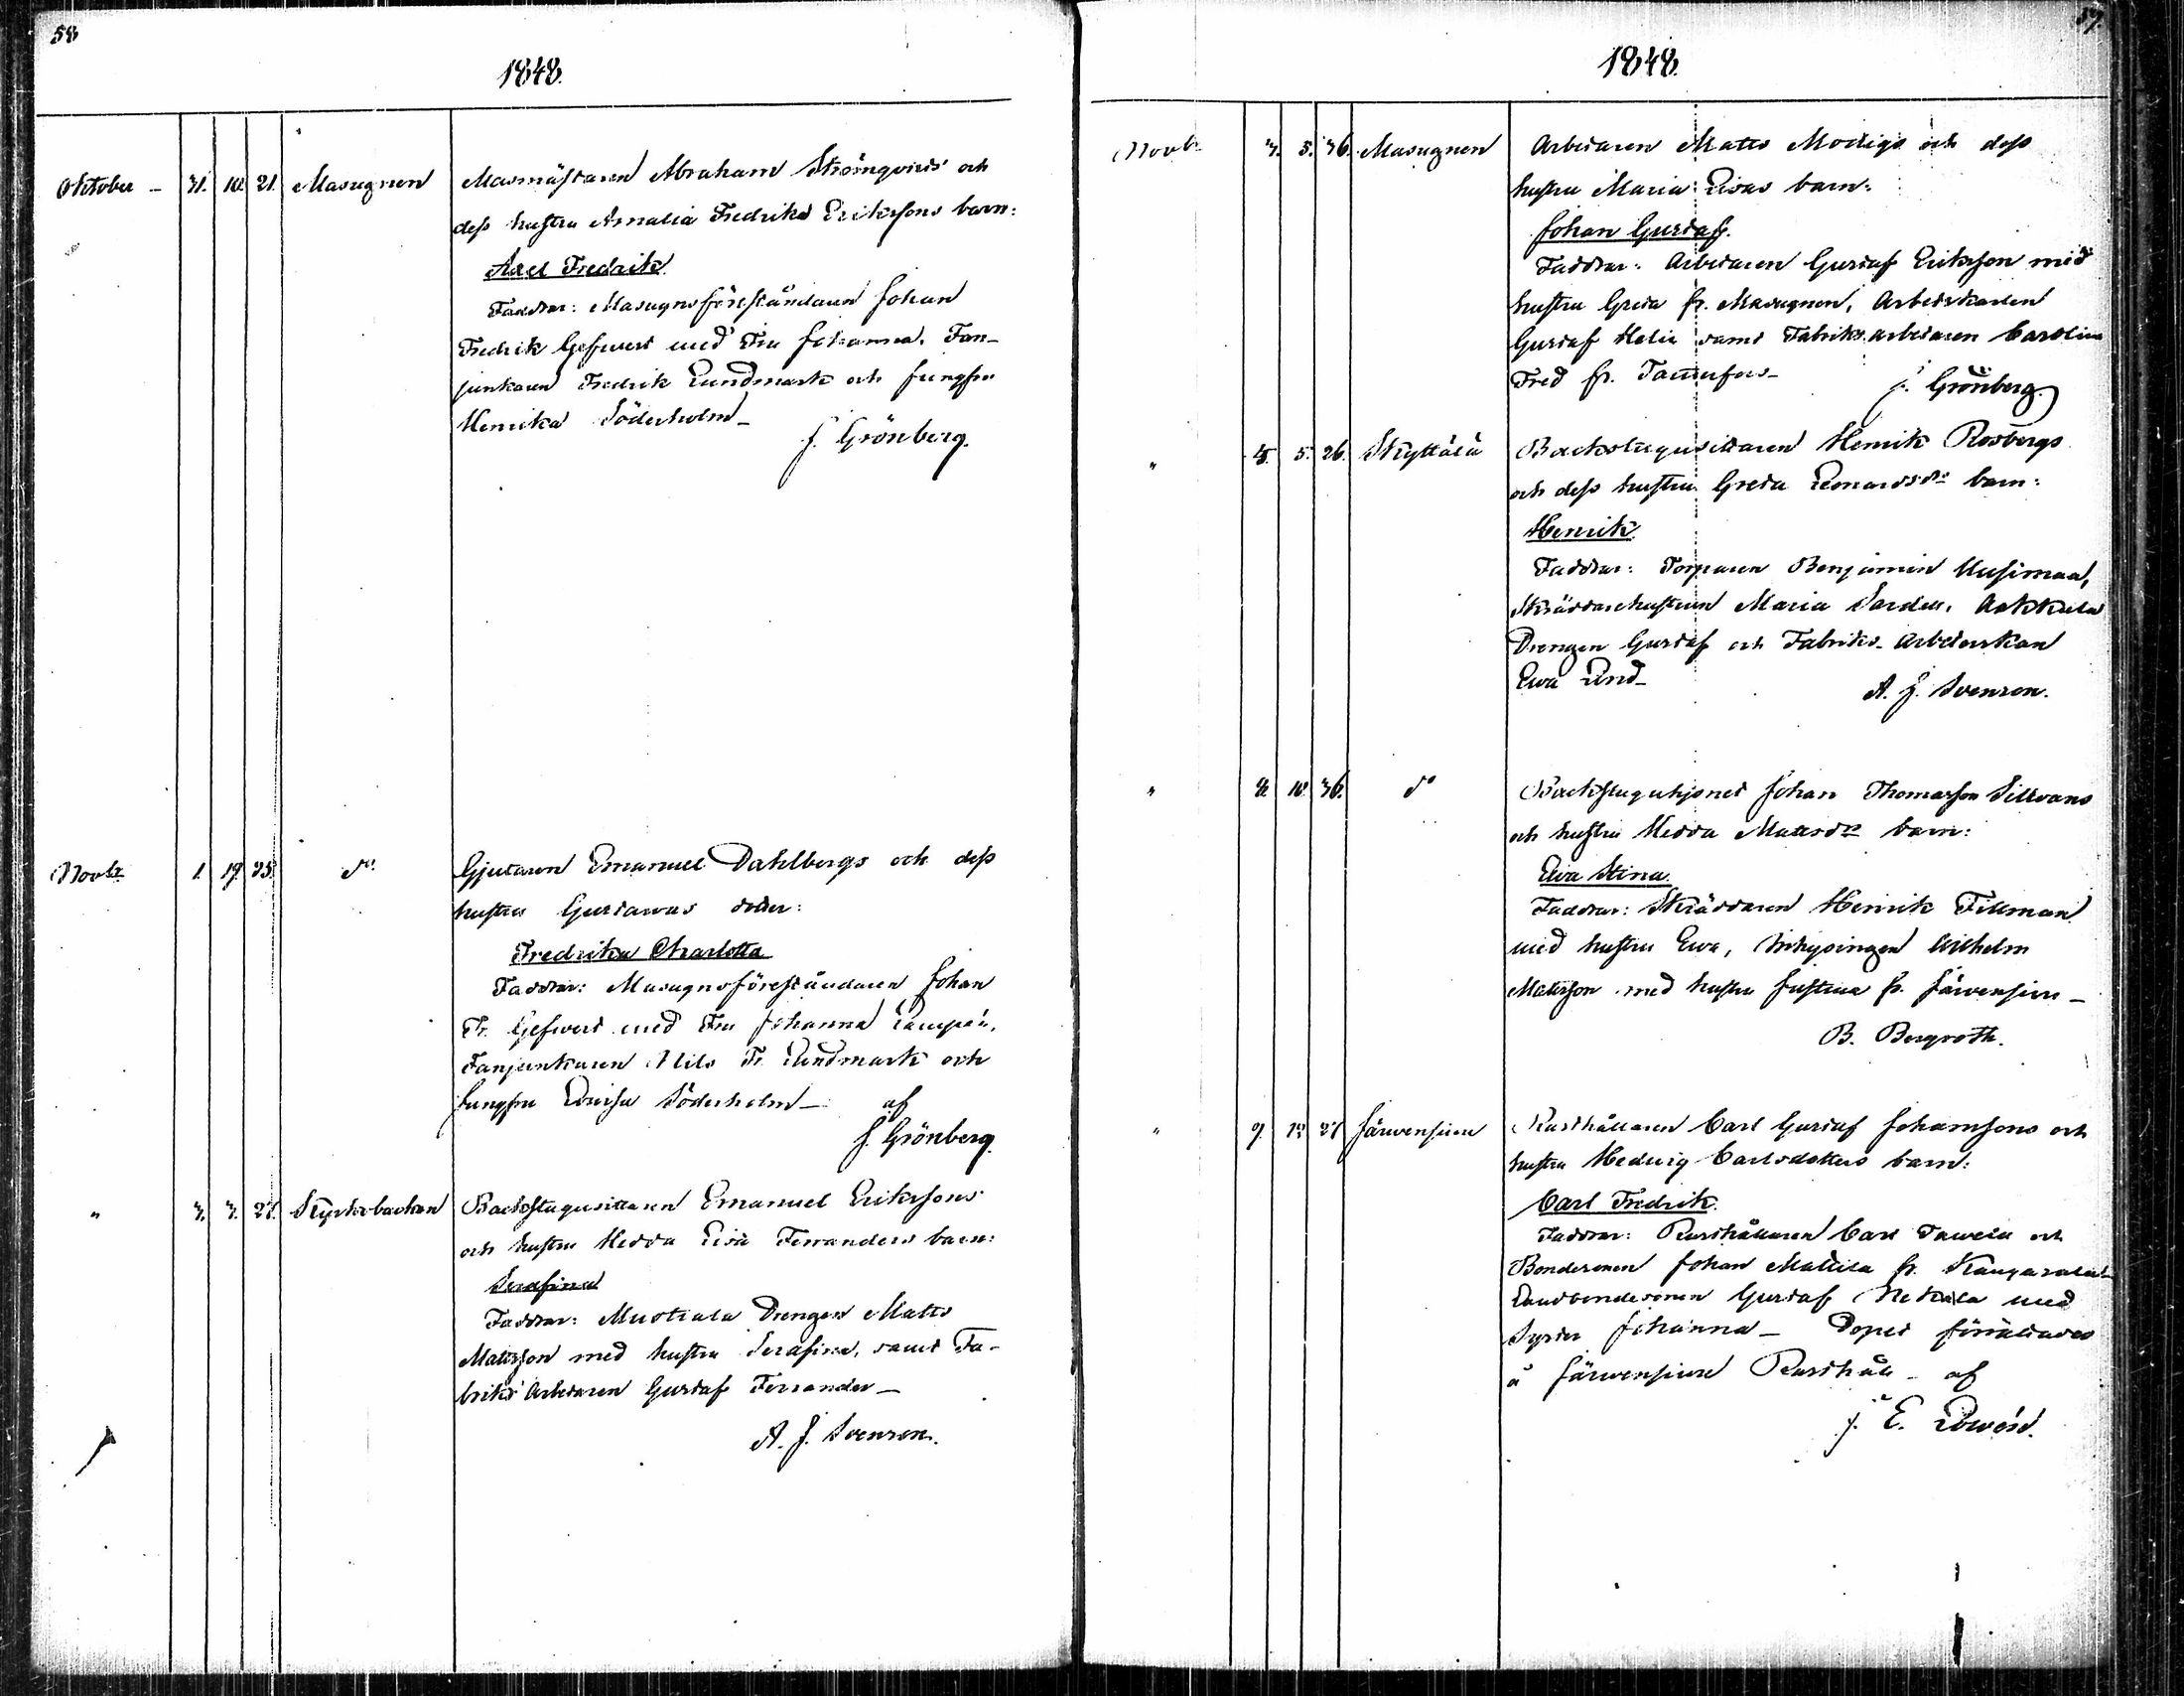 58
1848.
Oktober – 31. 10. 21. Masugnen Masmästaren Abraham Strömqvists och
dess hustru Amalia Fredrika Erikssons barn:
Axel Fredrik
Faddrar: Masugnsföreståndaren Johan
Fredrik Gefwert med Fru Johanna, Fan-
junkaren Fredrik Lundmark och Jungfru
Henrika Söderholm –
J. Grönberg.
Novbr 1. 19. 35. do Gjutaren Emanuel Dahlbergs och dess
hustru Gustavas dotter:
Fredrika Charlotta
Faddrar: Masugnsföreståndaren Johan
Fr. Gefwert med Fru Johanna
Fanjunkaren Nils Fr. Lundmark och
Jungfru Lovisa Söderholm – af
J. Grönberg.
" 3. 3. 27. Kyrkobackan Backstugusittaren Emanuel Erikssons
och hustru Hedda Lisa Ferranders barn:
Serafina
Faddrar: Mustiala Drengen Matts
Matsson med hustru Serafina, samt Fa-
briks Arbetaren Gustaf Ferrander –
A. J. Svenson.
59.
1848.
Novbr 3. 5. 36. Masugnen Arbetaren Matts Modigs och dess
hustru Maria Lisas barn:
Johan Gustaf.
Faddrar: Arbetaren Gustaf Eriksson med
hustru Greta fr. Masugnen, Arbetskarlen
Gustaf Helin samt Fabriks arbetaren Carolina
Fred fr. Tammerfors –
J. Grönberg.
" 5. 5. 26. Skyttälä Backstugusittaren Henrik Rosbergs
och dess hustru Greta Leonardsdr barn:
Henrik
Faddrar: Torparen Benjamin Uusimaa,
Skräddarehustrun Maria Sardell, Akkula
Drengen Gustaf och Fabriks-Arbeterskan
Ewa Lind –
A. J. Svenson.
" 8. 10. 36. do Backstuguhjonet Johan Thomasson Sillvans
och hustru Hedda Mattsdr barn:
Ewa Stina.
Faddrar: Skräddaren Henrik Tillman
med hustru Ewa, Inhysingen Wilhelm
Matsson med hustru Justina fr. Järvensivu –
B. Bergroth.
" 9. 12. 27. Järvensivu Rusthållaren Carl Gustaf Johanssons och
hustru Hedwig Carlsdotters barn:
Carl Fredrik.
Faddrar: Rusthållaren Carl Tawela och
Bondesonen Johan Mattila fr. Kangasala
Landbondesonen Gustaf Nekala med
Syster Johanna – Dopet förrättades
å Järvensivu Rusthåll – af
J. E. Lowén.